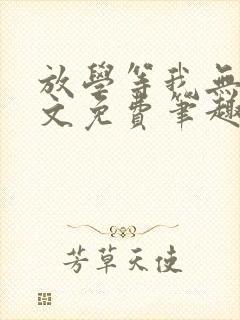 放學等我無
文免費筆趣
芳草天使